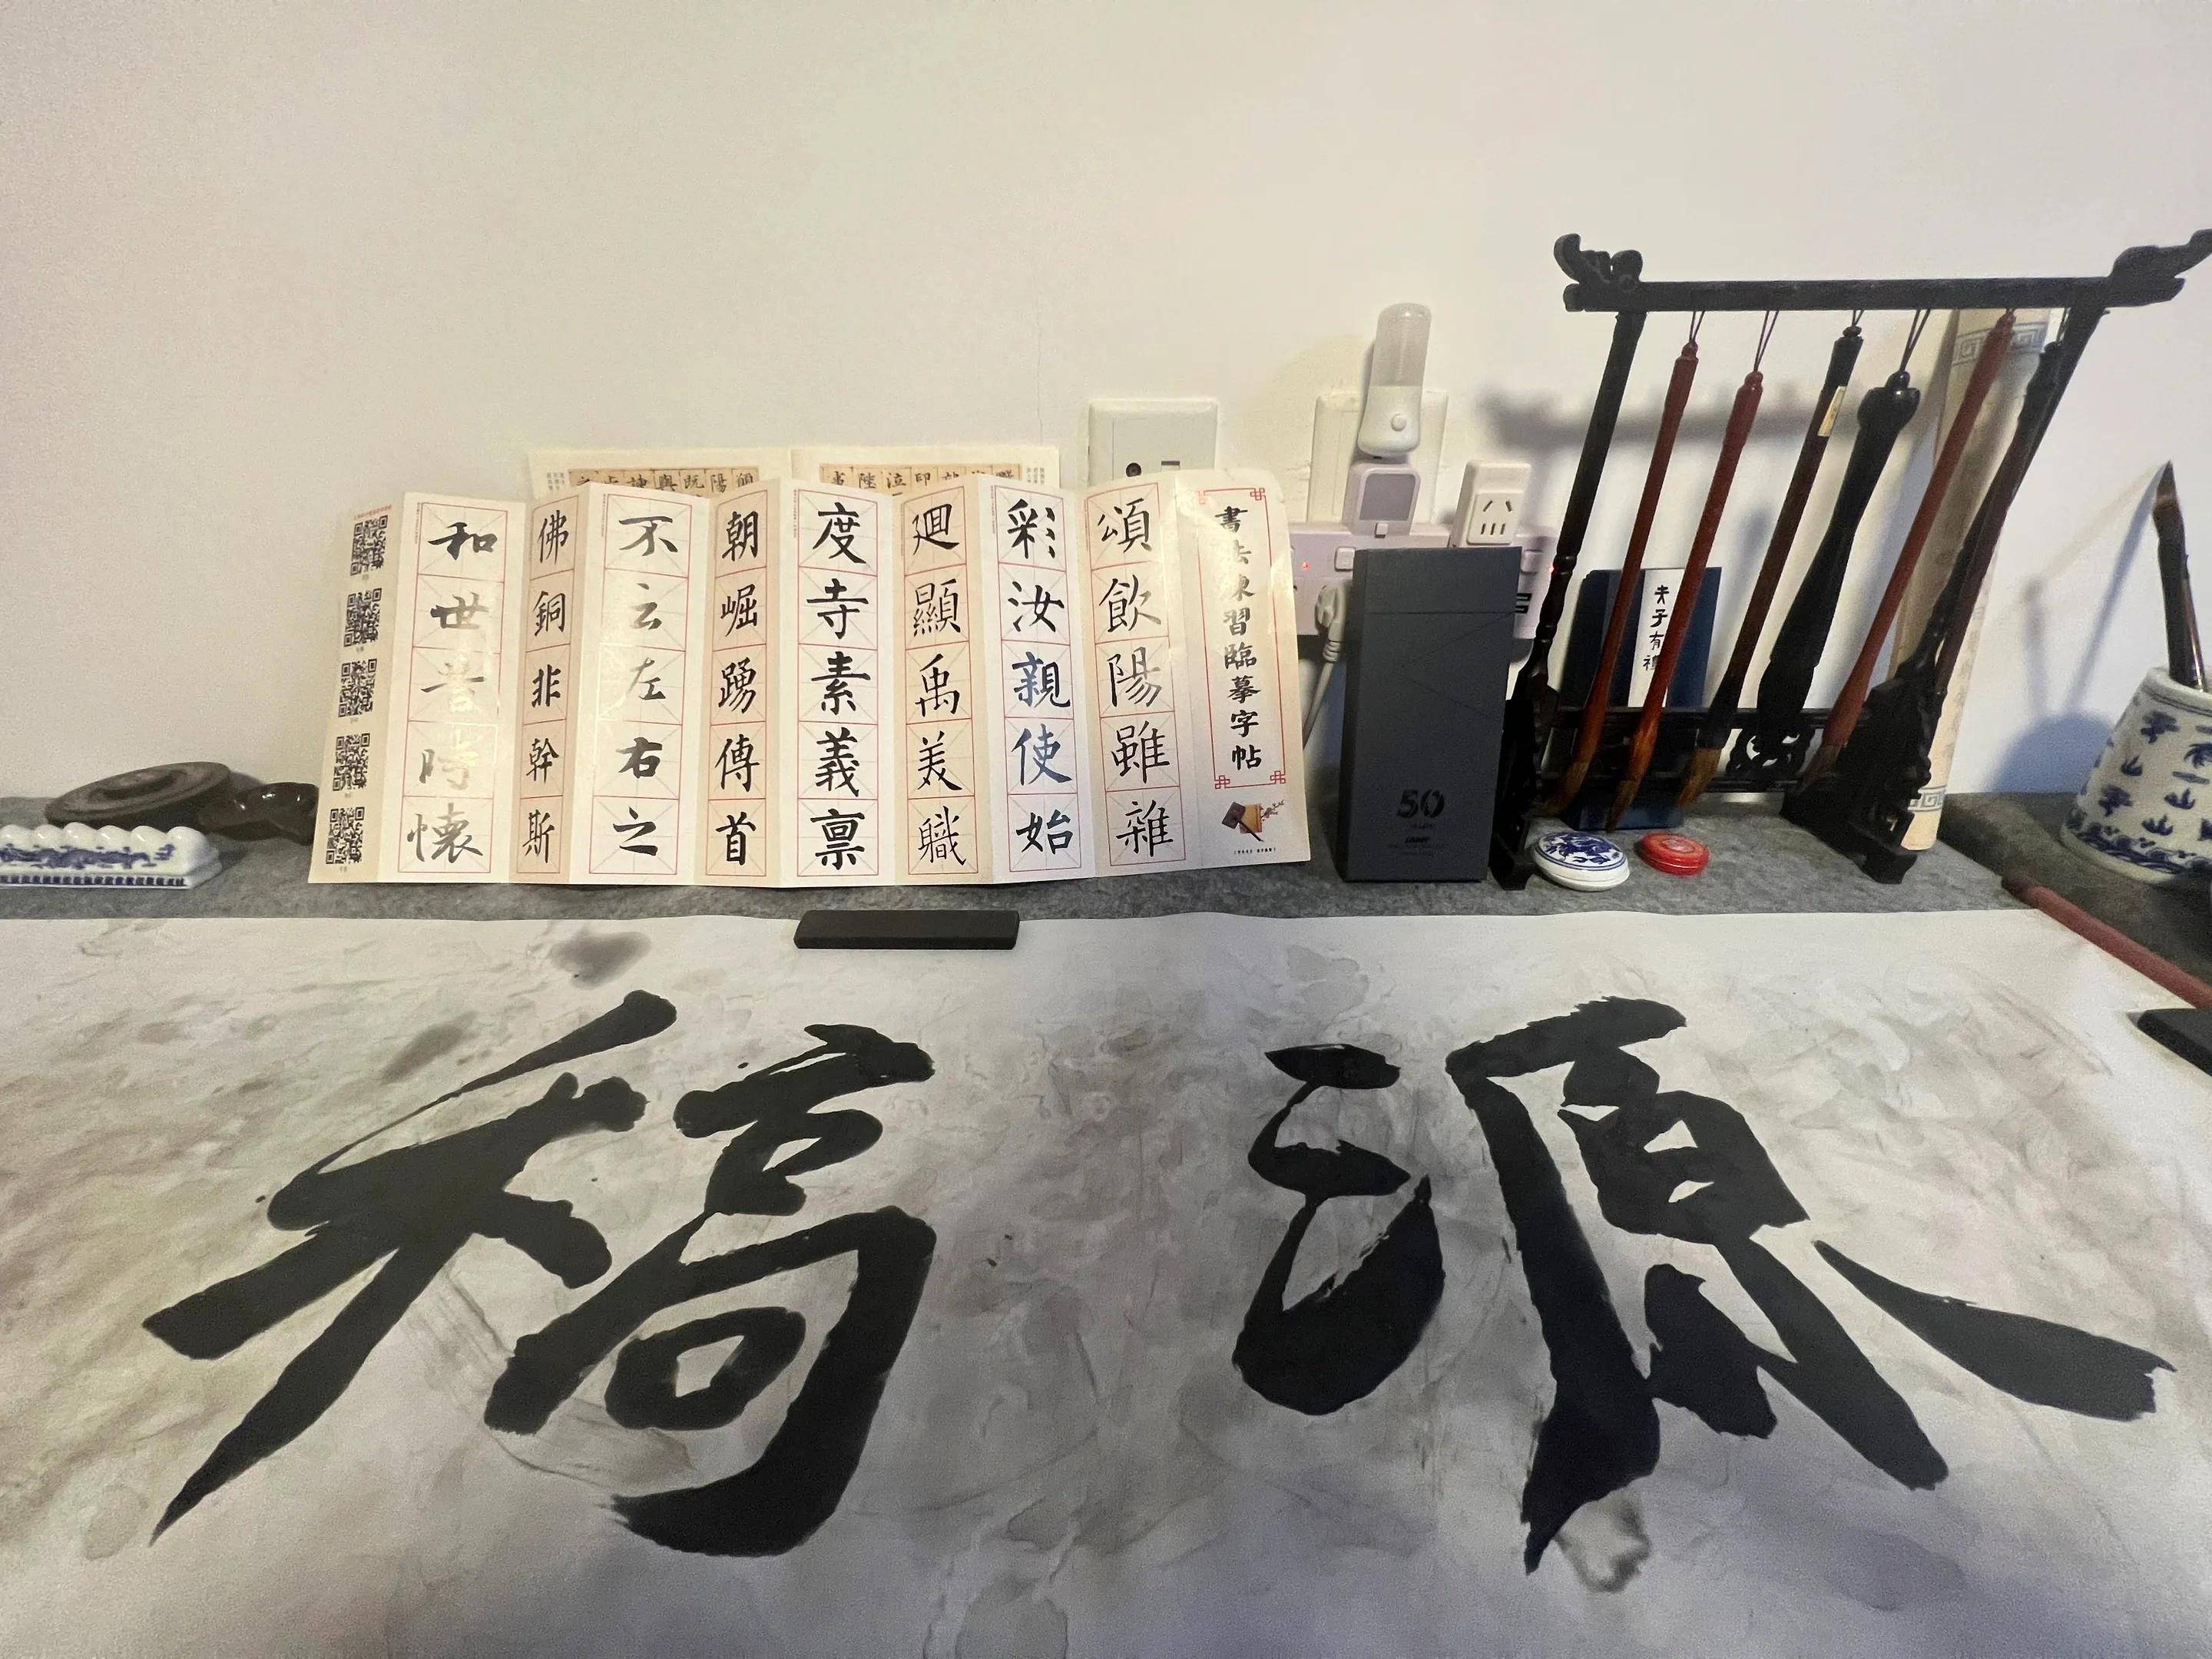 書法練習臨摹字帖
頌飲陽雖雜
彩汝親使始
廻顯禹美職
度寺素義禀
朝崛踴傳首
不云左右之
佛銅非幹斯
和世普時懷
50
夫子有禮
源稿